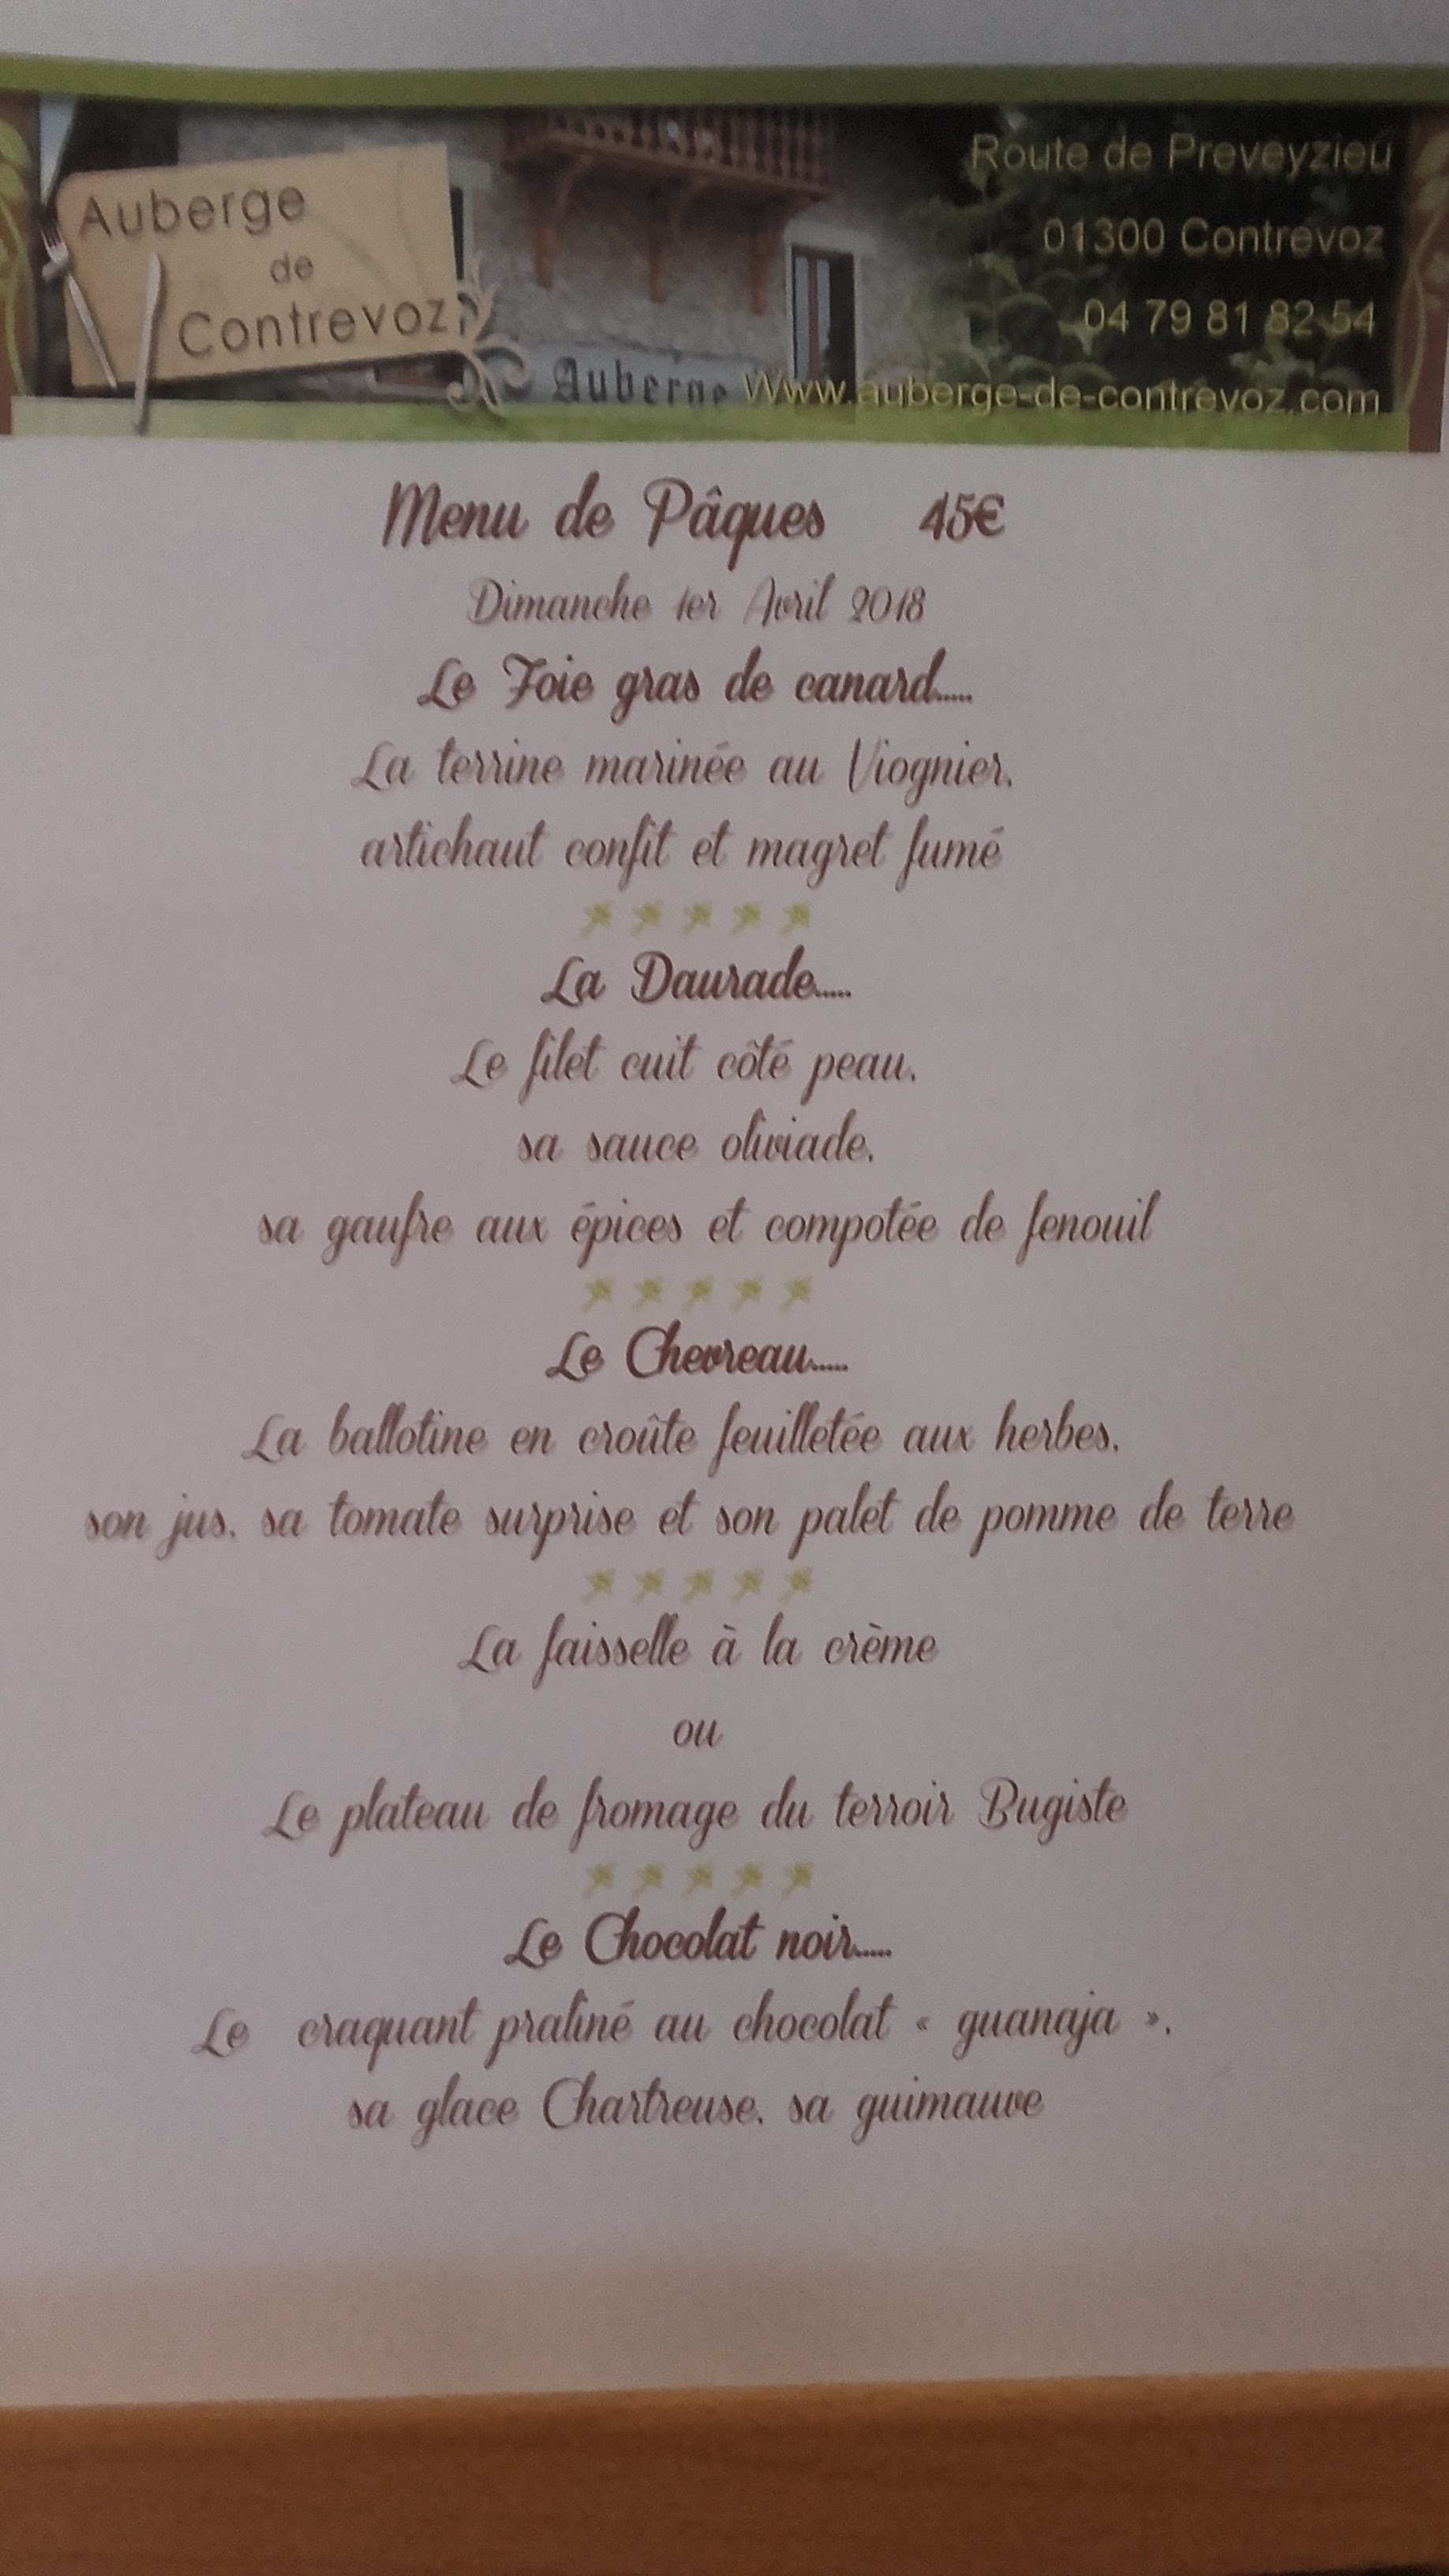 Auberge
de
Contrevoz
Route de Preveyzieu
01300 Contrevoz
04 79 81 82 54
Auberge
Www.auberge-de-contrevoz.com
Menu de Pâques 45€
Dimanche 1er Avril 2018
Le Foie gras de canard.....
La terrine marinée au Viognier,
artichaut confit et magret fumé
La Daurade.....
Le filet cuit côté peau,
sa sauce oliviade,
sa gaufre aux épices et compotée de fenouil
Le Chevreau.....
La ballotine en croûte feuilletée aux herbes,
son jus, sa tomate surprise et son palet de pomme de terre
La faisselle à la crème
ou
Le plateau de fromage du terroir Bugiste
Le Chocolat noir.....
Le craquant praliné au chocolat « guanaja »,
sa glace Chartreuse, sa guimauve